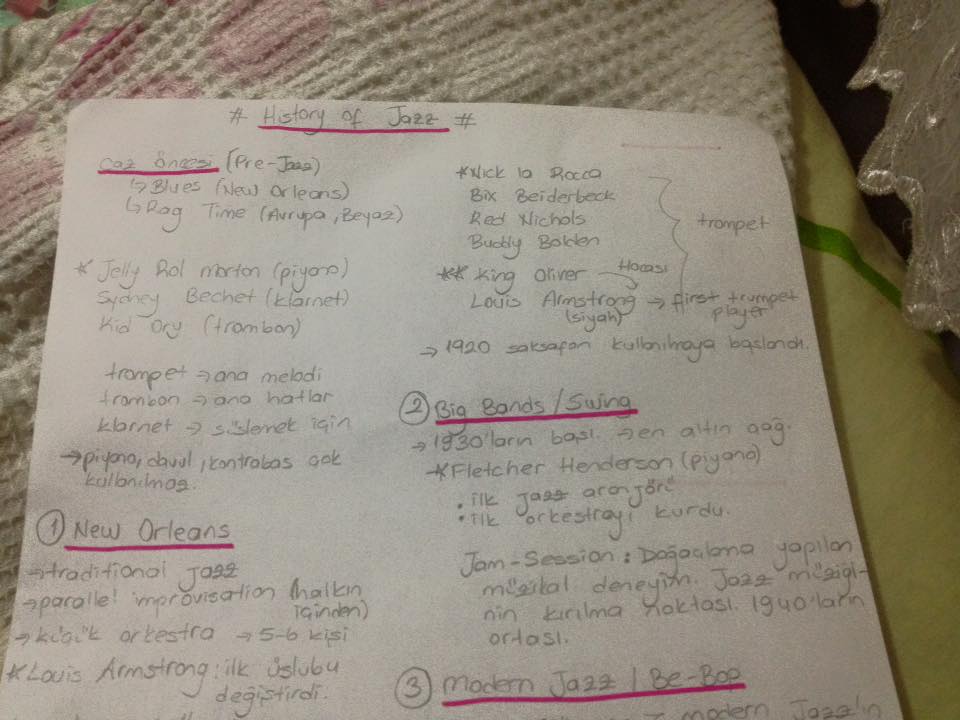 # History of Jazz #
Caz öncesi (Pre-Jazz)
↳ Blues (New Orleans)
↳ Rag Time (Avrupa, Beyaz)
* Jelly Rol Morton (piyano)
Sydney Bechet (klarnet)
Kid Ory (trombon)
trompet → ana melodi
trombon → ana hatlar
klarnet → süslemek için
→ piyano, davul, kontrabas çok
kullanılmaz.
① New Orleans
→ traditional jazz
→ parallel improvisation (halkın
içinden)
→ küçük orkestra → 5-6 kişi
* Louis Armstrong: ilk üslubu
değiştirdi.
* Nick la Rocca
Bix Beiderbeck
Red Nichols
Buddy Bolden
trompet
** King Oliver → Hocası
Louis Armstrong → first trumpet
(siyah) player
→ 1920 saksafon kullanılmaya başlandı.
② Big Bands / Swing
→ 1930'ların başı → en altın çağ.
* Fletcher Henderson (piyano)
: ilk jazz aranjörü
: ilk orkestrayı kurdu.
Jam-Session : Doğaçlama yapılan
müzikal deneyim. Jazz müziği-
nin kırılma noktası. 1940'ların
ortası.
③ Modern Jazz / Be-Bop
→ modern Jazz'ın